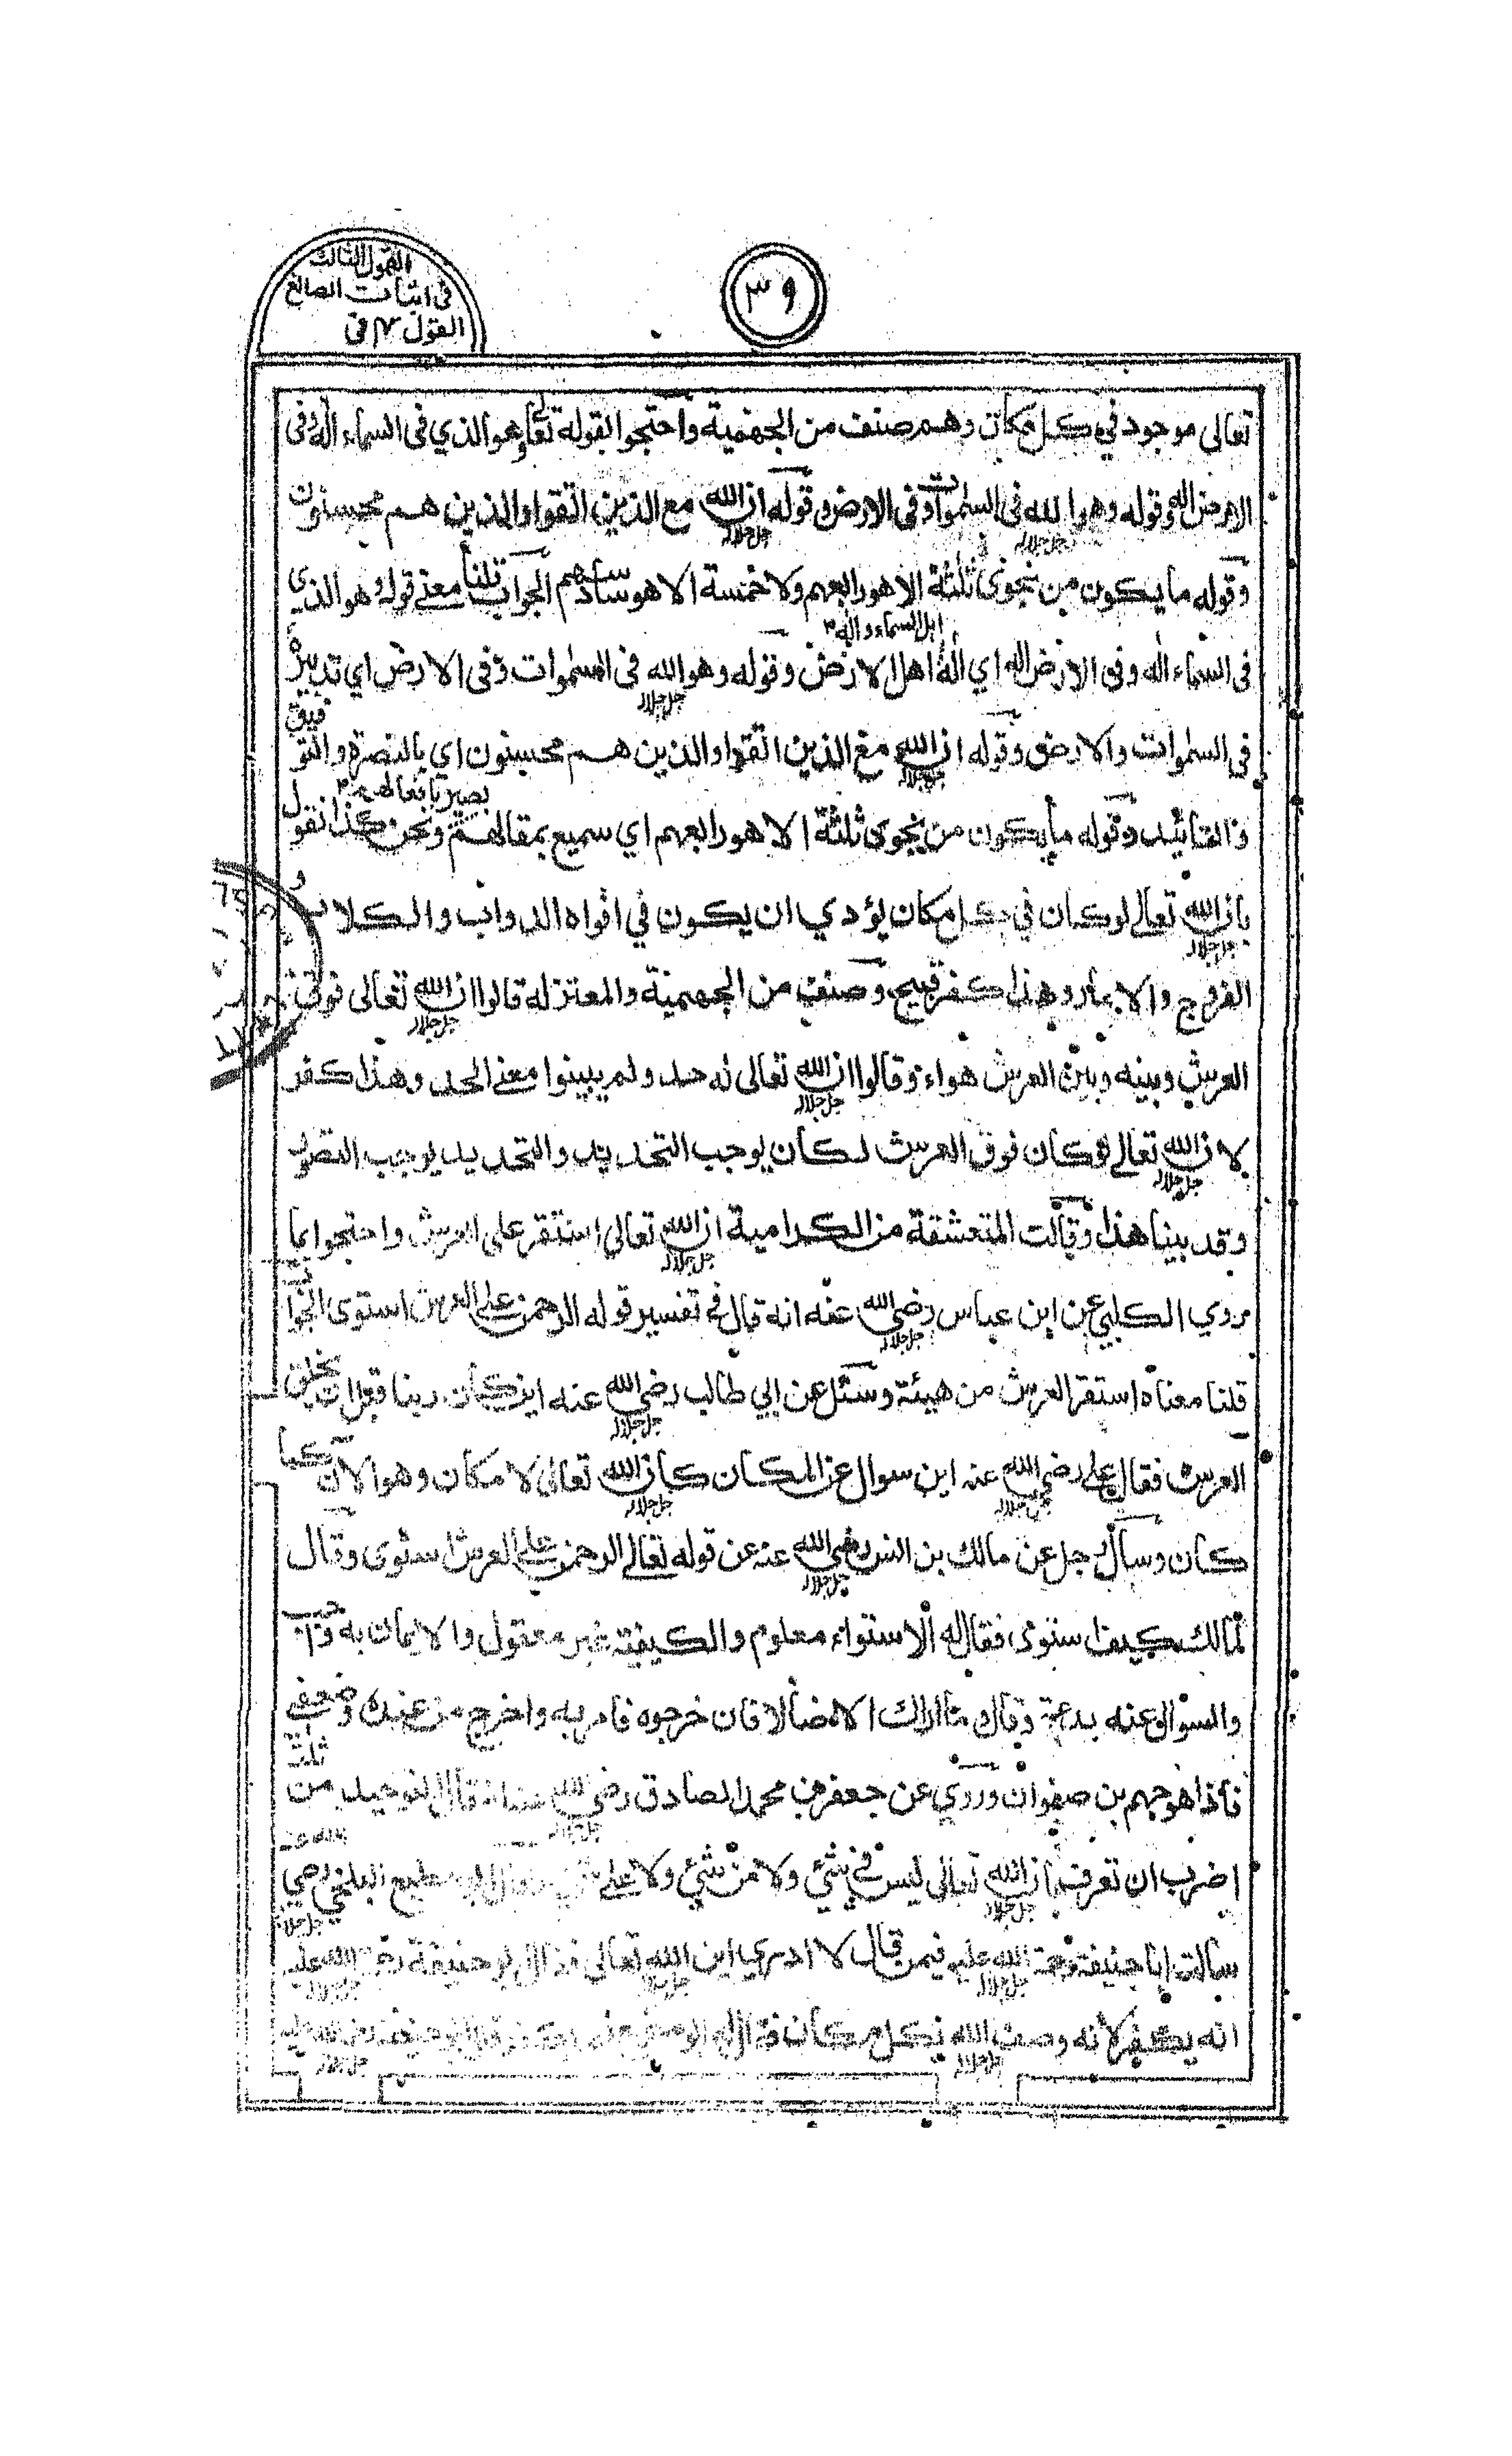 القول الثالث
في اثبات الصانع
القول ٧ في
٣٩
تعالى موجود في كل مكان وهم صنف من الجهمية واحتجوا بقوله تعالى وهو الذي فى السماء اله وفى
الارض اله وقوله وهو الله فى السموات وفى الارض وقوله ان الله جل جلاله مع الذين اتقوا والذين هم محسنون
وقوله ما يكون من نجوى ثلثة الا هو رابعهم ولا خمسة الا هو سادسهم الجواب قلنا معنى قوله وهو الذي
فى السماء اله وفى الارض اله اي اله اهل السماء واله اهل الارض وقوله وهو الله جل جلاله فى السموات وفى الارض اي تدبيره
فى السموات والارض وقوله ان الله جل جلاله مع الذين اتقوا والذين هم محسنون اي بالنصرة والتوفيق
والتائيد وقوله ما يكون من نجوى ثلثة الا هو رابعهم اي سميع بمقالهم بصير بافعالهم ونحن كذا نقول
بان الله جل جلاله تعالى لو كان في كل مكان يؤدي ان يكون في افواه الدواب والكلاب و
الفروج والاماء وهذا كفر قبيح وصنف من الجهمية والمعتزلة قالوا ان الله جل جلاله تعالى فوق
العرش وبينه وبين العرش هواء وقالوا ان الله جل جلاله تعالى له حد ولم يبينوا معنى الحد وهذا كفر
لان الله جل جلاله تعالى لو كان فوق العرش لكان يوجب التحديد والتحديد يوجب
وقد بينا هذا وقالت المتعشقة من الكرامية ان الله جل جلاله تعالى استقر على العرش واحتجوا بما
روي الكلبي عن ابن عباس رضي الله جل جلاله عنه انه قال في تفسير قوله الرحمن على العرش استوى الجواب
قلنا معناه استقر العرش من هيئة وسئل عن ابي طالب رضي الله جل جلاله عنه اين كان ربنا قبل ان يخلق
العرش فقال على رضي الله جل جلاله عنه اين سوال عن المكان كان الله جل جلاله تعالى لا مكان وهو الان كما
كان وسال رجل عن مالك بن انس رضي الله جل جلاله عنه عن قوله تعالى الرحمن على العرش استوى وقال
لمالك كيف استوى فقال له الاستواء معلوم والكيفية غير معقول والايمان به واجب
والسوال عنه بدعة وقال ما اراك الا ضالا فان خرجوه فامر به واخرج من عنده
فاذا هو جهم بن صفوان وروي عن جعفر بن محمد الصادق رضي الله عنه انه قال التوحيد من ثلث
اضرب ان تعرف بان الله جل جلاله تعالى ليس في شئ ولا من شئ ولا على شئ وقال ابو مطيع البلخي رضي الله عنه
سالت ابا حنيفة رحمة الله جل جلاله عليه فيمن قال لا ادري اين الله تعالى فقال ابو حنيفة رحمة الله عليه
انه يكفر لانه وصف الله جل جلاله بكل مكان